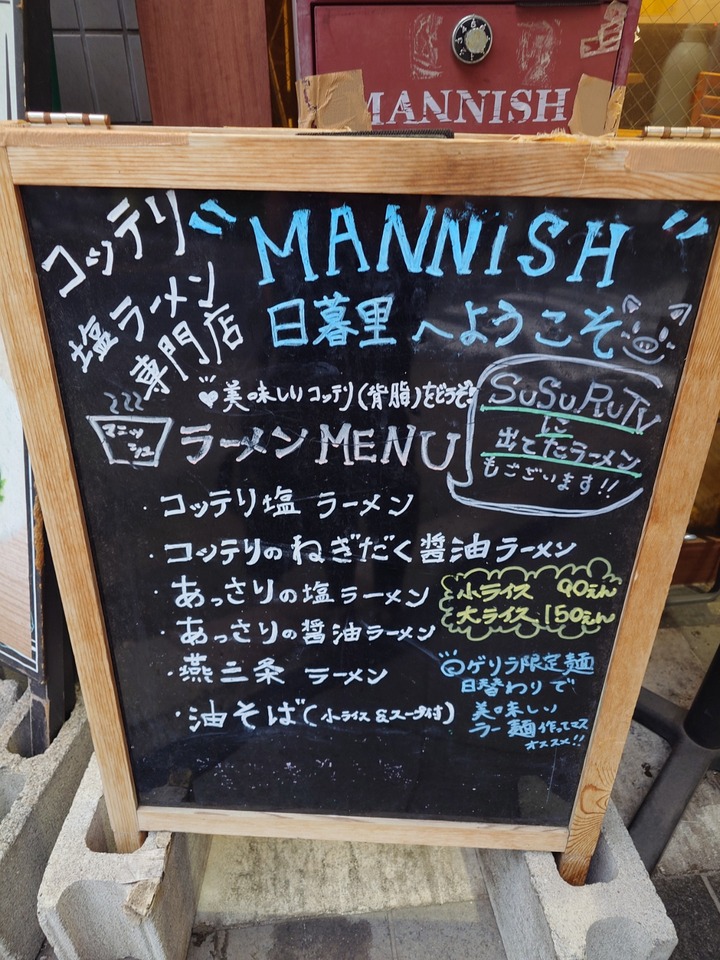 MANNISH
コッテリ
塩ラーメン
専門店
MANNiSH
日暮里へようこそ
美味しいコッテリ(背脂)をどうぞ!
マニッ
シュ
ラーメンMENU
SUSURUTV
に
出てたラーメン
もございます!!
・コッテリ塩 ラーメン
・コッテリのねぎだく醤油ラーメン
・あっさりの塩ラーメン
・あっさりの醤油ラーメン
・燕三条 ラーメン
・油そば(小ライス&スープ付)
小ライス 90えん
大ライス 150えん
◎ゲリラ限定麺
日替わりで
美味しい
ラー麺作ってマス
オススメ!!